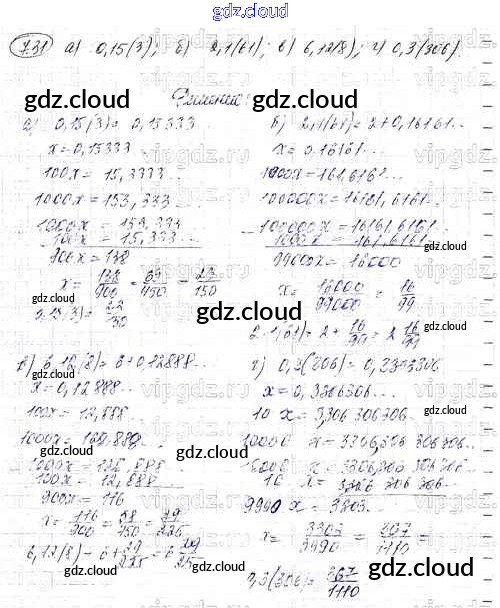 gdz.cloud
7.31 а) 0,15(3); б) 2,1(61); в) 6,12(8); г) 0,3(306).
Решение:
а) 0,15(3) = 0,15333...
x = 0,15333...
100x = 15,333...
1000x = 153,333...
1000x = 153,333
100x = 15,333...
900x = 138
x = 138/900 = 69/450 = 23/150
б) 2,1(61) = 2 + 0,16161...
x = 0,16161...
1000x = 161,6161...
100000x = 16161,6161...
100000x = 16161,6161...
1000x = 161,6161...
99000x = 16000
x = 16000/99000 = 16/99
2,1(61) = 2 + 16/99 = 2 16/99
в) 6,12(8) = 6 + 0,12888...
x = 0,12888...
100x = 12,888...
1000x = 128,888...
1000x = 128,888
100x = 12,888...
900x = 116
x = 116/900 = 58/450 = 29/225
6,12(8) = 6 + 29/225 = 6 29/225
г) 0,3(306) = 0,3306306
x = 0,3306306...
10 x = 3,306 306 306...
10000 x = 3306,306 306 306...
10000 x = 3306,306 306 306...
10 x = 3,306 306 306...
9990 x = 3303.
x = 3303/9990 = 367/1110 =
0,3(306) = 367/1110
gdz.cloud